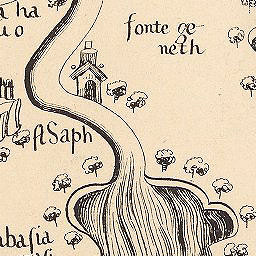 a ha
uo
fonte ge
neth
A Saph
abasia